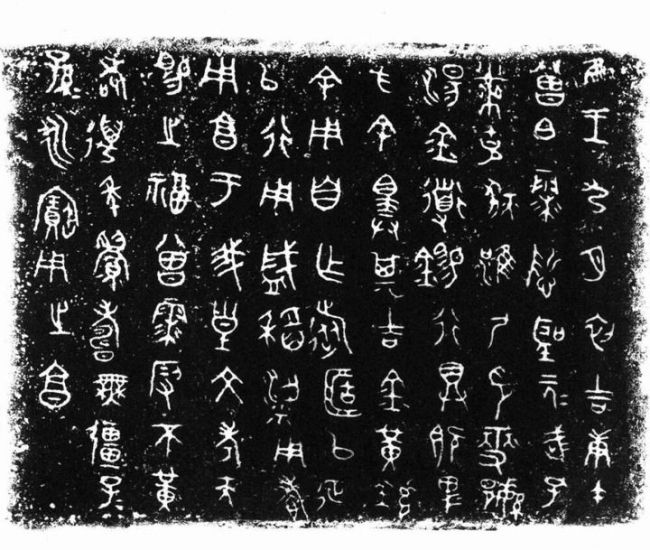 隹王九月初吉庚午
曾白霥悊聖元武孔
黹克狄淮尸印燮繁
湯金道錫行具既卑
方余擇其吉金黃鑪
余用自乍旅𠤳以征
以行用盛稻粱用孝
用享于我皇文考天
賜之福曾霥叚不黃
耇萬年眉壽無疆子
孫永寶用之享